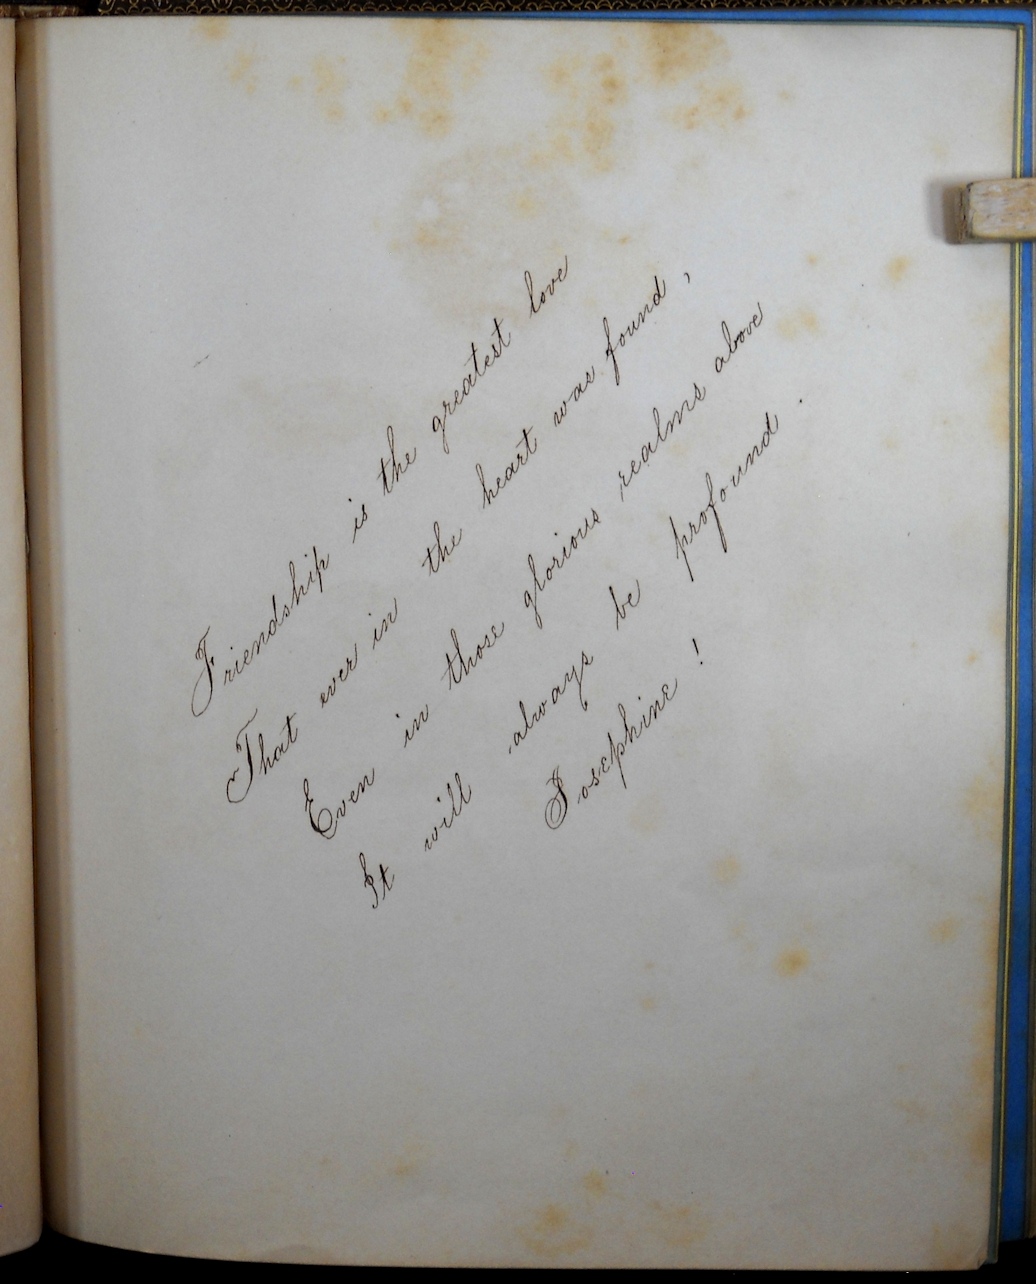 Friendship is the greatest love
That ever in the heart was found,
Even in those glorious realms above
It will always be profound.
Josephine!